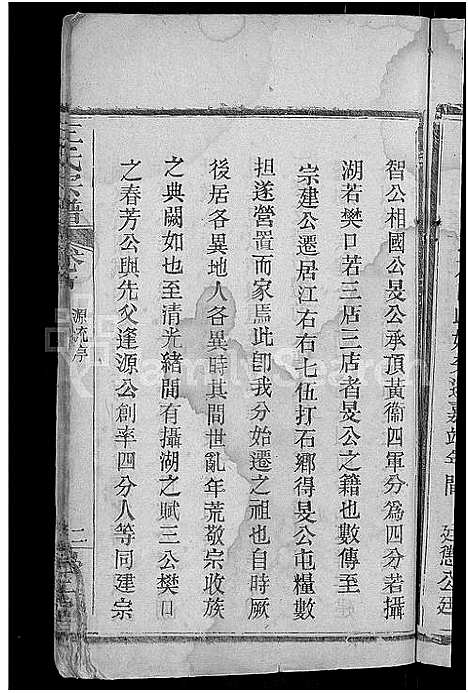 智公相國公旻公承頂黃衞四軍分爲四分若攝
湖若樊口若三店三店者旻公之籍也數傳至
宗建公遷居江右右七伍打石鄉得旻公屯糧數
担遂營置而家焉此卽我分始遷之祖也自時厥
後居各異地人各異時其間世亂年荒敬宗收族
之典闕如也至清光緒間有攝湖之賦三公樊口
之春芳公與先父逢源公創率四分人等同建宗
王氏宗譜
源流序
二
FamilySearch